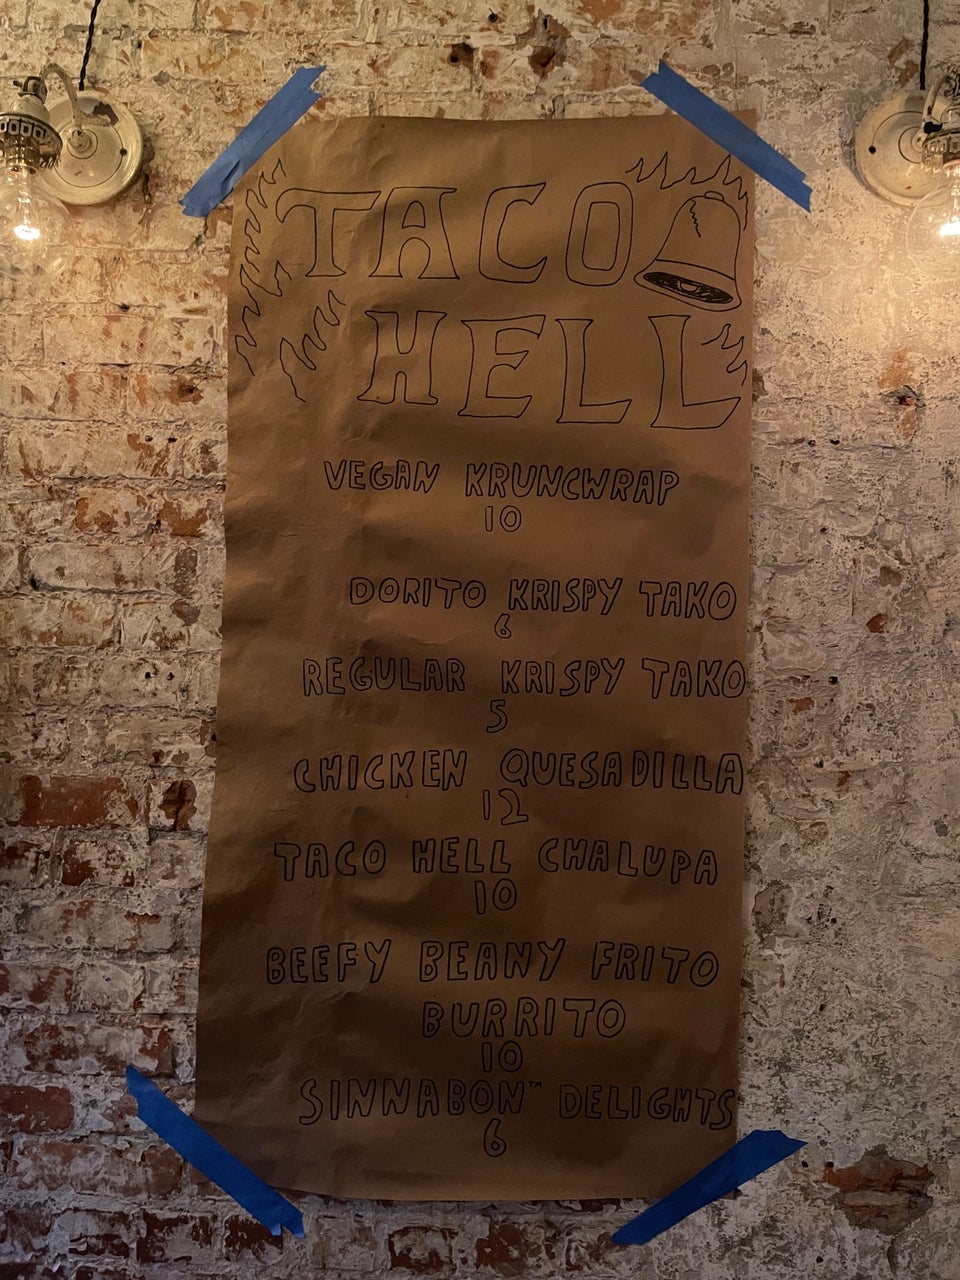 TACO
HELL
VEGAN KRUNCWRAP
10
DORITO KRISPY TAKO
6
REGULAR KRISPY TAKO
5
CHICKEN QUESADILLA
12
TACO HELL CHALUPA
10
BEEFY BEANY FRITO
BURRITO
10
SINNABON™ DELIGHTS
6